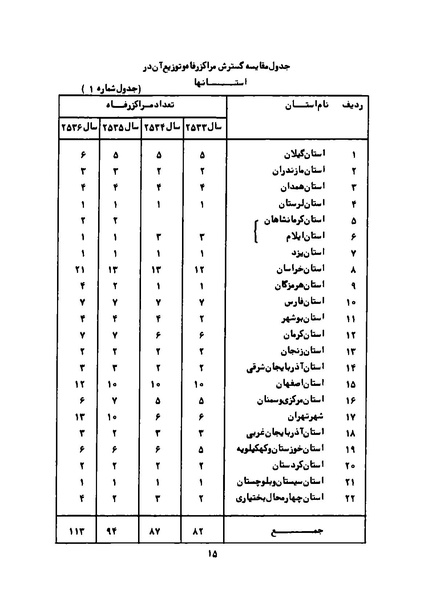 جدول مقایسه گسترش مراکز رفاه و توزیع آن در
استـــــانها
(جدول شماره ۱)
ردیف نام استــان تعداد مراکز رفــاه
سال ۲۵۳۳ سال ۲۵۳۴ سال ۲۵۳۵ سال ۲۵۳۶
۱ استان گیلان ۵ ۵ ۵ ۶
۲ استان مازندران ۲ ۲ ۳ ۳
۳ استان همدان ۴ ۴ ۴ ۴
۴ استان لرستان ۱ ۱ ۱ ۱
۵ استان کرمانشاهان ۲ ۲
۶ استان ایلام ۳ ۳ ۱ ۱
۷ استان یزد ۱ ۱ ۱ ۱
۸ استان خراسان ۱۲ ۱۳ ۱۳ ۲۱
۹ استان هرمزگان ۱ ۱ ۲ ۴
۱۰ استان فارس ۷ ۷ ۷ ۷
۱۱ استان بوشهر ۲ ۴ ۴ ۴
۱۲ استان کرمان ۶ ۶ ۷ ۷
۱۳ استان زنجان ۲ ۲ ۲ ۲
۱۴ استان آذربایجان شرقی ۲ ۲ ۳ ۳
۱۵ استان اصفهان ۱۰ ۱۰ ۱۰ ۱۲
۱۶ استان مرکزی و سمنان ۵ ۵ ۷ ۶
۱۷ شهر تهران ۶ ۶ ۱۰ ۱۳
۱۸ استان آذربایجان غربی ۳ ۳ ۲ ۳
۱۹ استان خوزستان و کهکیلویه ۵ ۶ ۶ ۶
۲۰ استان کردستان ۲ ۲ ۲ ۲
۲۱ استان سیستان و بلوچستان ۱ ۱ ۱ ۱
۲۲ استان چهارمحال بختیاری ۲ ۳ ۲ ۴
جمـــــع ۸۲ ۸۷ ۹۴ ۱۱۳
۱۵